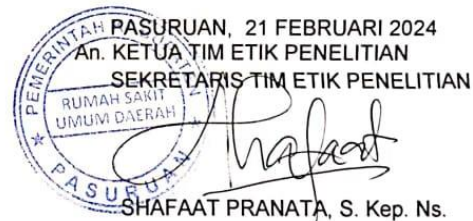 PASURUAN, 21 FEBRUARI 2024
An. KETUA TIM ETIK PENELITIAN
SEKRETARIS TIM ETIK PENELITIAN
PEMERINTAH KABUPATEN
RUMAH SAKIT
UMUM DAERAH
PASURUAN
SHAFAAT PRANATA, S. Kep. Ns.